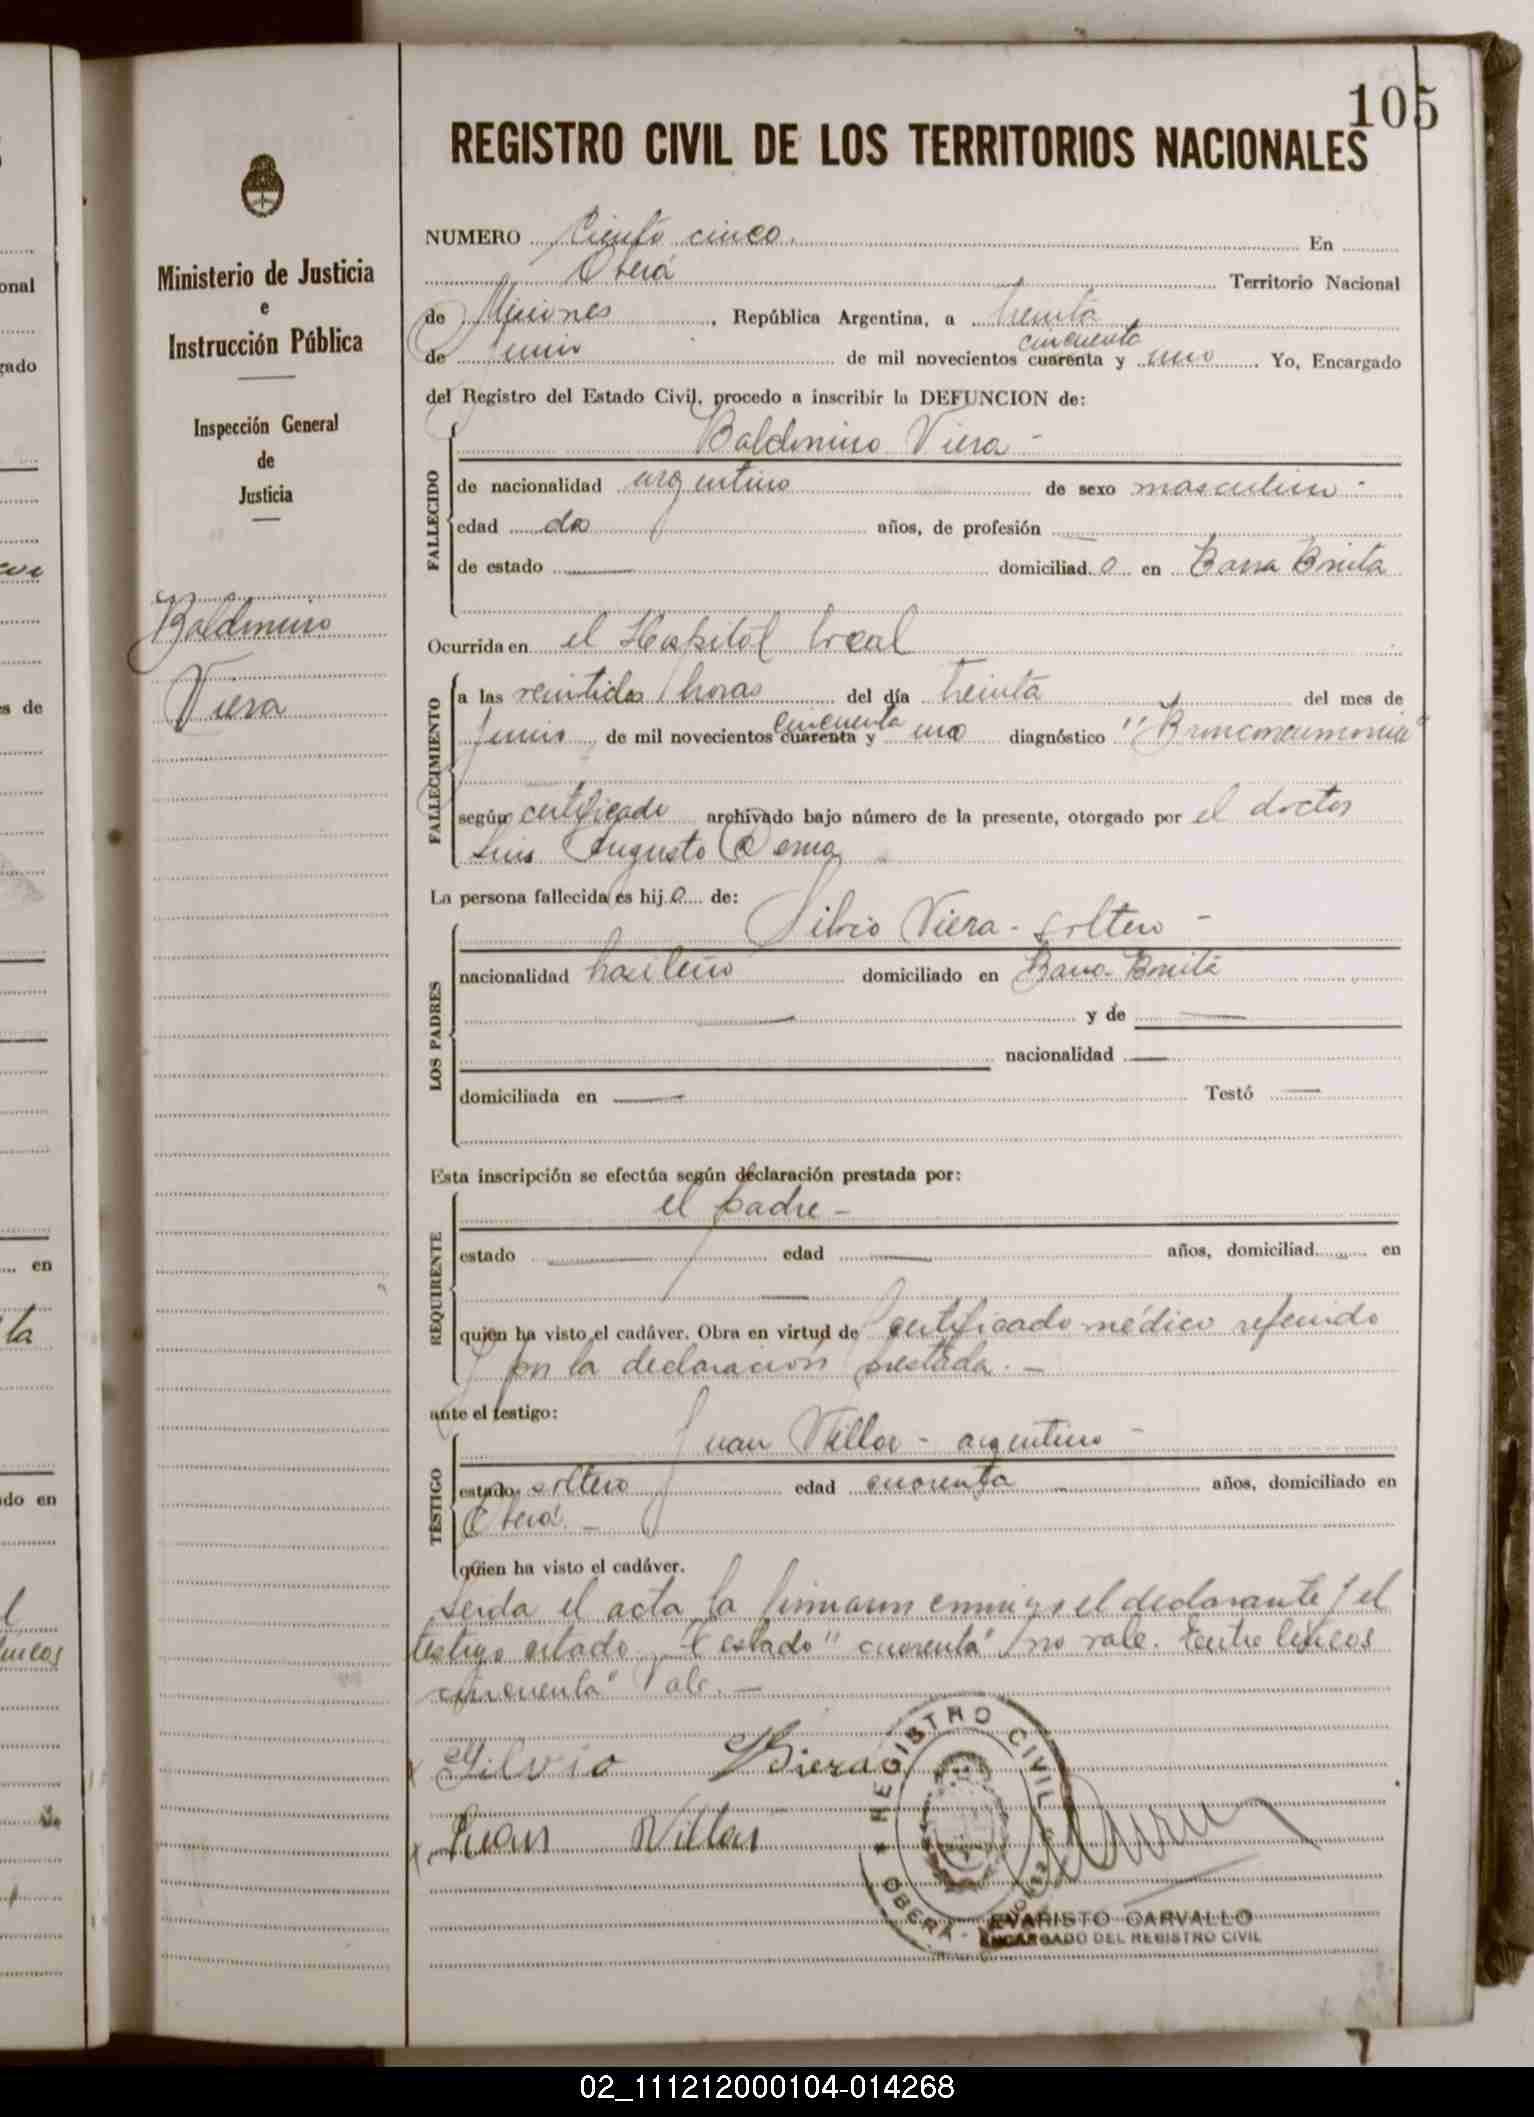 105
REGISTRO CIVIL DE LOS TERRITORIOS NACIONALES
Ministerio de Justicia
e
Instrucción Pública
Inspección General
de
Justicia
Baldomiro
Viera
NUMERO Ciento cinco. En
Oberá Territorio Nacional
de Misiones, República Argentina, a treinta
cincuenta
de junio de mil novecientos cuarenta y uno. Yo, Encargado
del Registro del Estado Civil, procedo a inscribir la DEFUNCION de:
FALLECIDO
Baldomiro Viera -
de nacionalidad argentino de sexo masculino -
edad dos años, de profesión —
de estado — domiciliado en Barra Bonita
Ocurrida en el Hospital local
FALLECIMIENTO
a las veintidos horas del día treinta del mes de
cincuenta
junio de mil novecientos cuarenta y uno diagnóstico "Bronconeumonia"
según certificado archivado bajo número de la presente, otorgado por el doctor
Luis Augusto Derna
La persona fallecida es hijo de:
LOS PADRES
Silvio Viera - soltero -
nacionalidad brasileño domiciliado en Barra Bonita
— y de —
nacionalidad —
domiciliada en — Testó —
Esta inscripción se efectúa según declaración prestada por:
REQUIRENTE
el padre -
estado — edad — años, domiciliad en
—
quien ha visto el cadáver. Obra en virtud de certificado médico referido
y en la declaración prestada. —
ante el testigo:
TESTIGO
Juan Villar - argentino -
estado soltero edad cuarenta años, domiciliado en
Oberá. —
quien ha visto el cadáver.
Leida el acta la firmaron conmigo el declarante y el
testigo citado. Testado "cuarenta" no vale. Entre lineas
cincuenta" Vale. —
x Silvio Viera
x Juan Villar
REGISTRO CIVIL
OBERÁ - MISIONES
EVARISTO CARVALLO
ENCARGADO DEL REGISTRO CIVIL
02_111212000104-014268